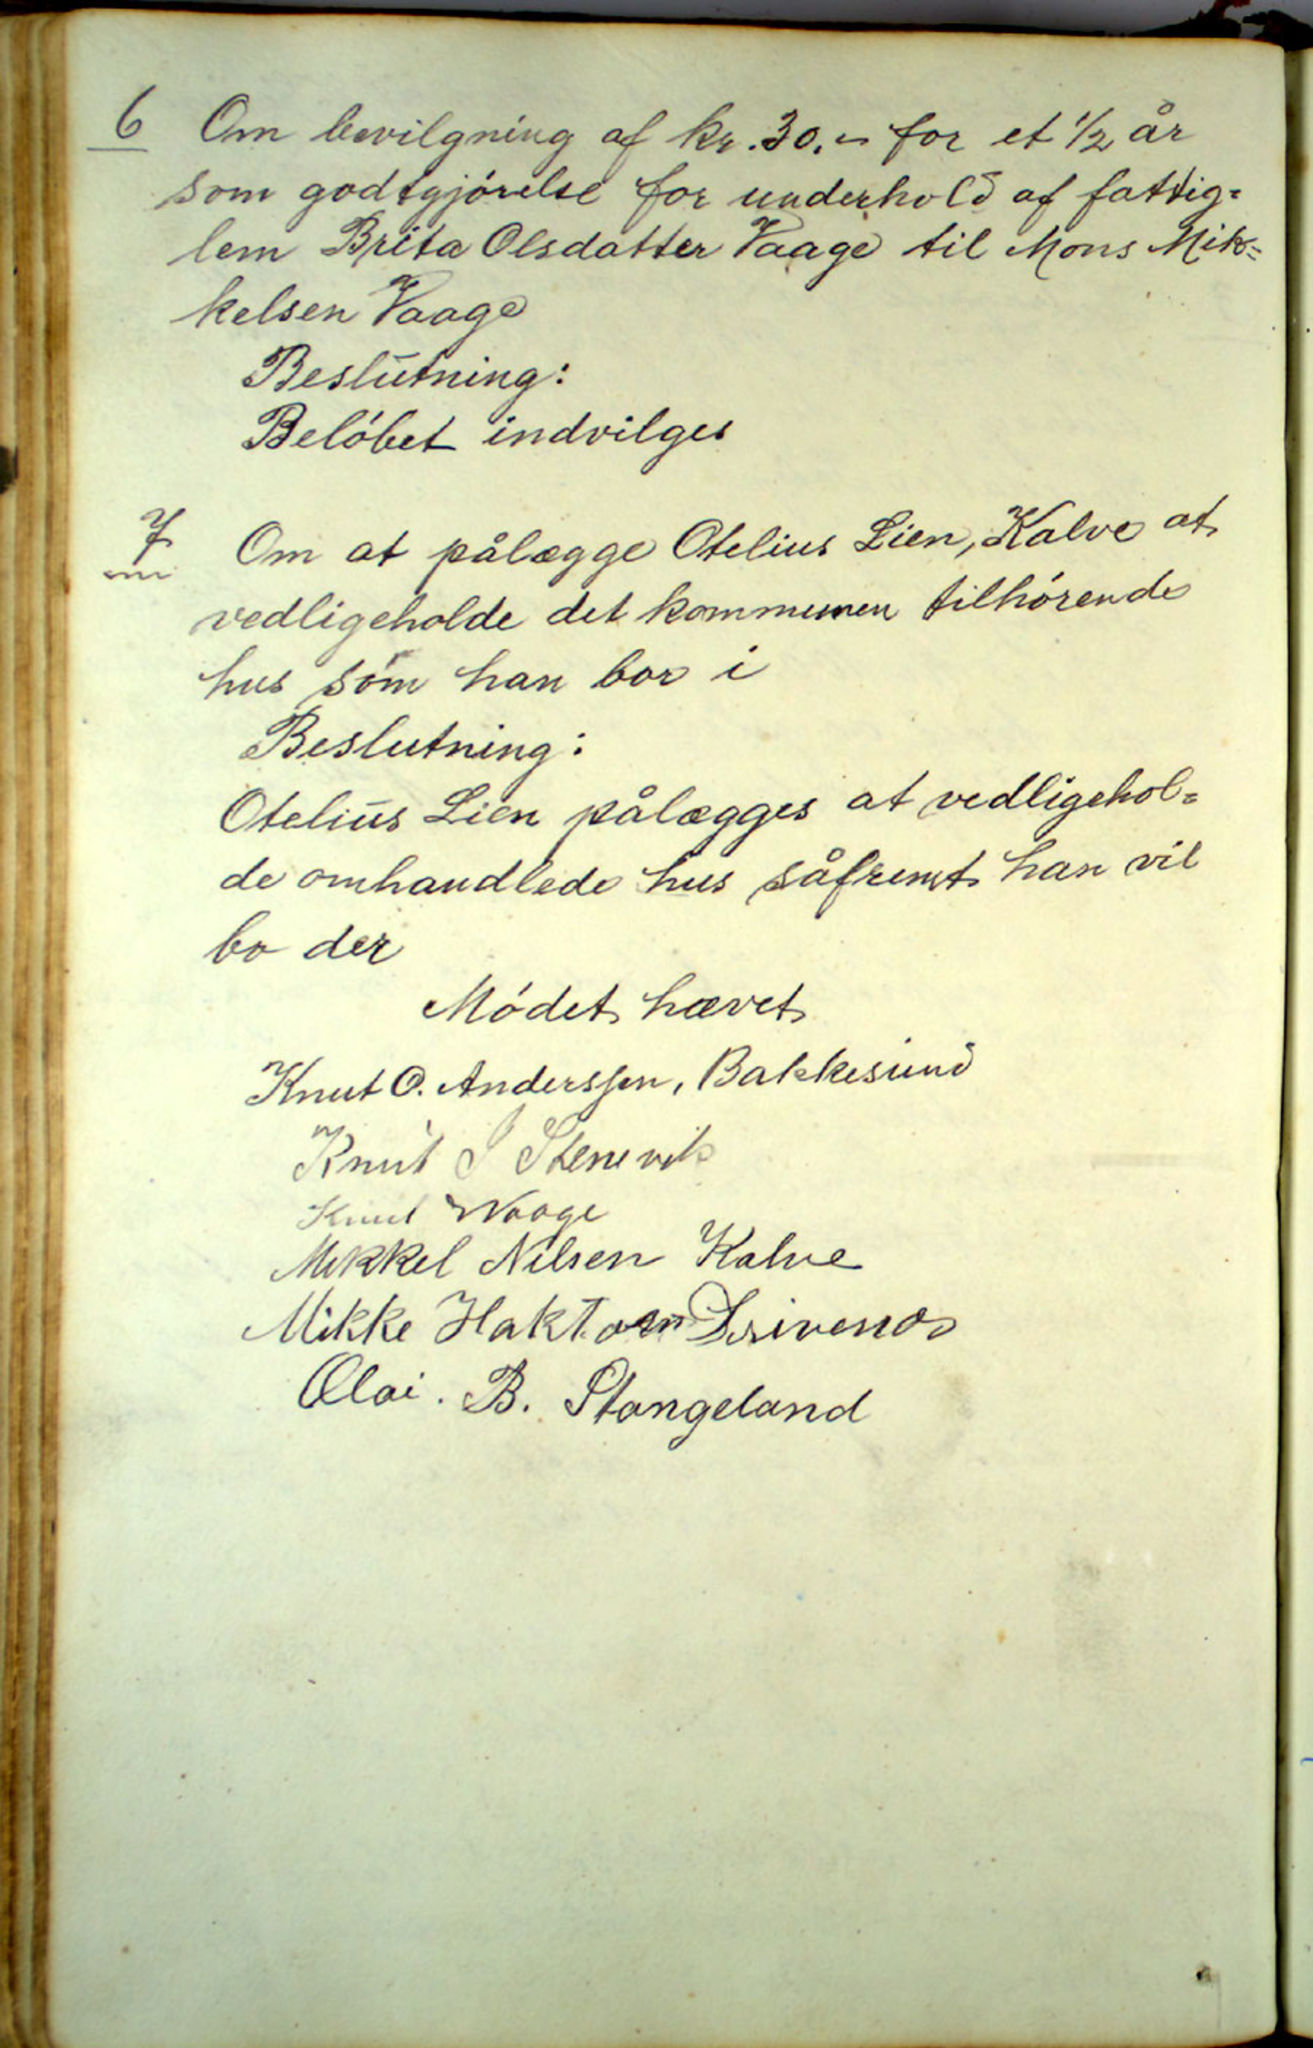 6 Om bevilgning af kr. 30,- for et 1/2 år
som godtgjórelse for underhold af fattig=
lem Brita Olsdatter Vaage til Mons Mik=
kelsen Vaage
Beslutning:
Belóbet indvilges
7 Om at pålægge Otelius Lien, Kalve at
vedligeholde det kommunen tilhórende
hus som han bor i
Beslutning:
Otelius Lien pålægges at vedligehol=
de omhandlede hus såfremt han vil
bo der
Módet hævet
Knut O. Anderssen, Bakkesund
Knut J Stenevik
Knut Waage
Mikkel Nilsen Kalve
Mikke Haktorn Drivenes
Olai. B. Stangeland